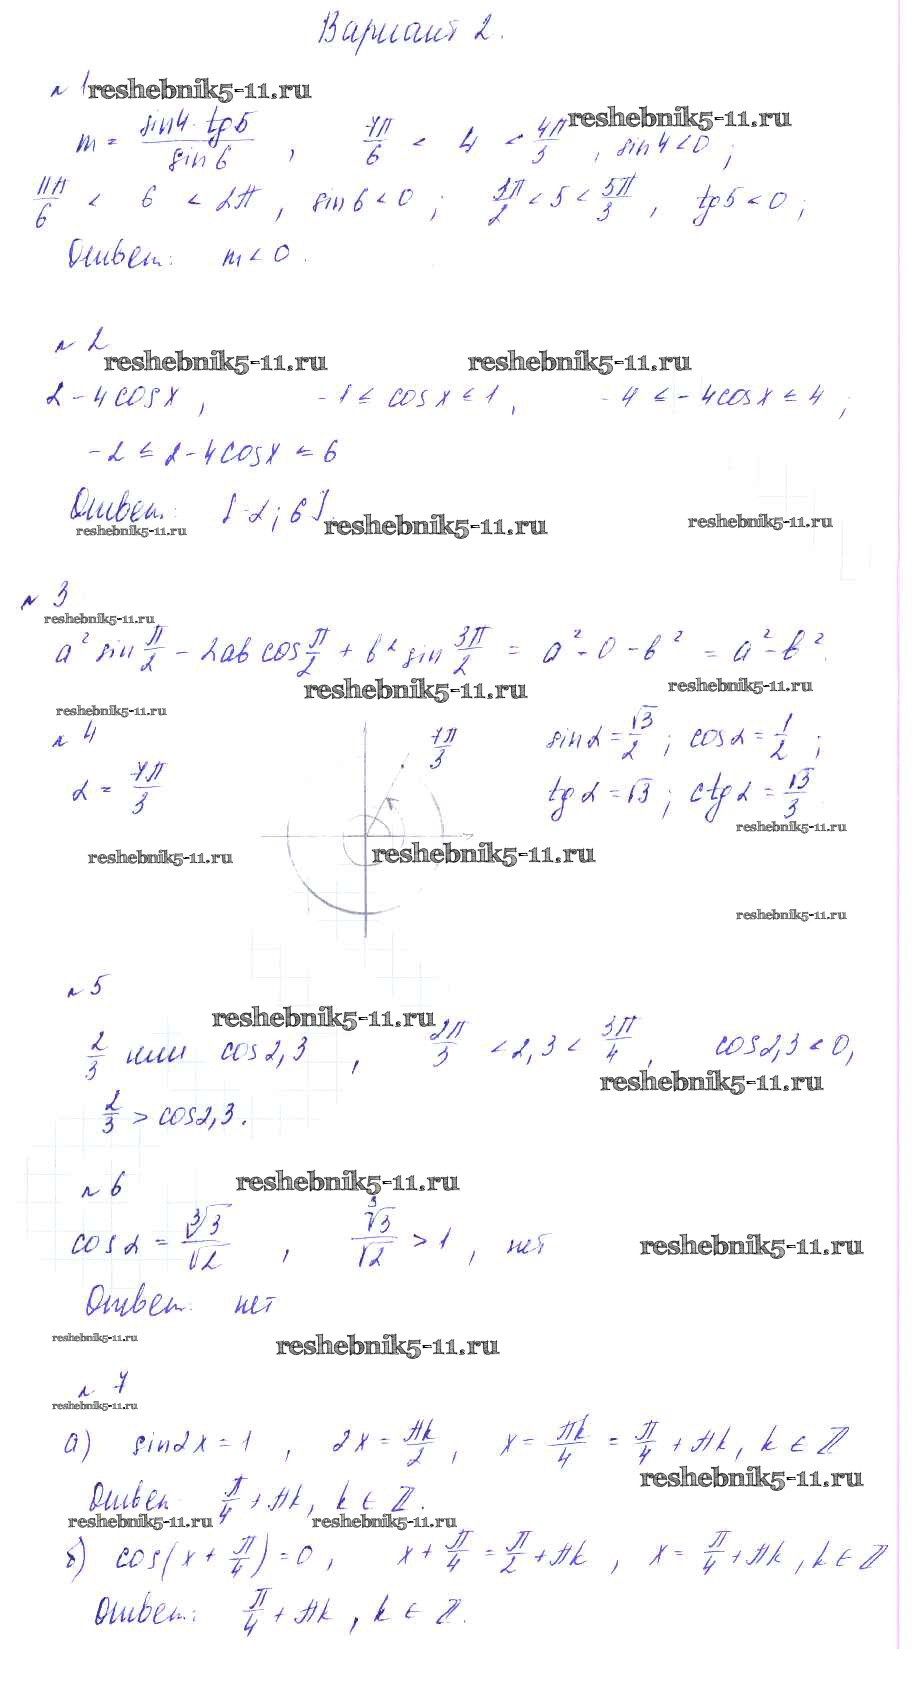 Вариант 2.
№ 1 reshebnik5-11.ru
m = sin4 · tg5 / sin6 , 7π/6 < 4 < 4π/3 , sin4 < 0 ; reshebnik5-11.ru
11π/6 < 6 < 2π , sin6 < 0 ; 3π/2 < 5 < 5π/3 , tg5 < 0 ;
Ответ: m < 0 .
№ 2
reshebnik5-11.ru reshebnik5-11.ru
2 - 4cosx , -1 ≤ cosx ≤ 1 , -4 ≤ -4cosx ≤ 4 ;
-2 ≤ 2 - 4cosx ≤ 6
Ответ: [-2; 6].
reshebnik5-11.ru reshebnik5-11.ru reshebnik5-11.ru
№ 3
reshebnik5-11.ru
a² sin π/2 - 2ab cos π/2 + b² sin 3π/2 = a² - 0 - b² = a² - b².
reshebnik5-11.ru reshebnik5-11.ru
reshebnik5-11.ru
№ 4 7π/3 sinα = √3/2 ; cosα = 1/2 ;
α = 7π/3 tgα = √3 ; ctgα = √3/3
reshebnik5-11.ru
reshebnik5-11.ru reshebnik5-11.ru
reshebnik5-11.ru
№ 5
reshebnik5-11.ru
2/3 или cos2,3 , 2π/3 < 2,3 < 3π/4 , cos2,3 < 0,
reshebnik5-11.ru
2/3 > cos2,3.
№ 6 reshebnik5-11.ru
cosα = ∛3/√2 , ∛3/√2 > 1 , нет reshebnik5-11.ru
Ответ: нет
reshebnik5-11.ru reshebnik5-11.ru
№ 7
reshebnik5-11.ru
а) sin2x = 1 , 2x = πk/2 , x = πk/4 = π/4 + πk, k ∈ Z
reshebnik5-11.ru
Ответ π/4 + πk, k ∈ Z.
reshebnik5-11.ru reshebnik5-11.ru
б) cos(x + π/4) = 0 , x + π/4 = π/2 + πk , x = π/4 + πk , k ∈ Z
Ответ: π/4 + πk , k ∈ Z.